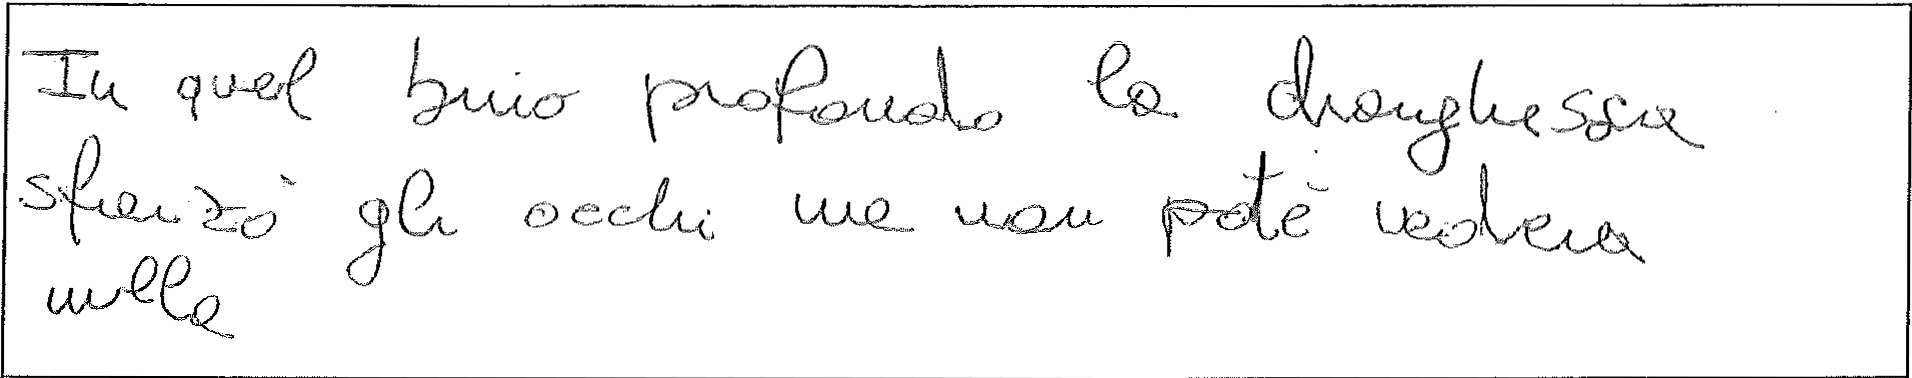 In quel buio profondo la draughessa
sforzò gli occhi ma non poté vedere
nulla